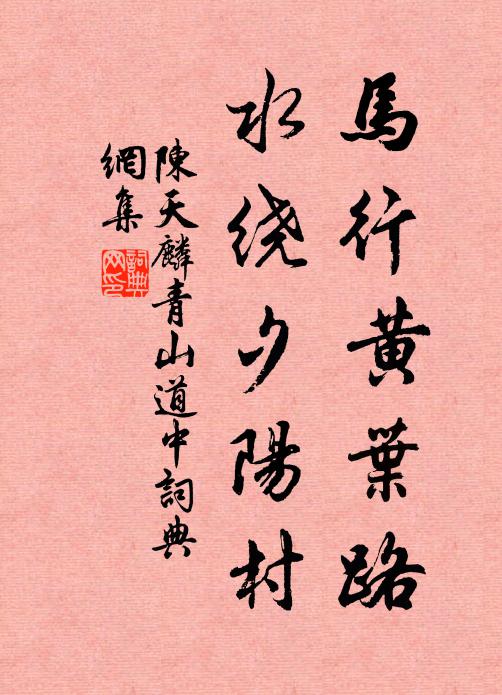 馬行黃葉路
水绕夕陽村
陳天麟青山道中詞典
網集
詞典网印